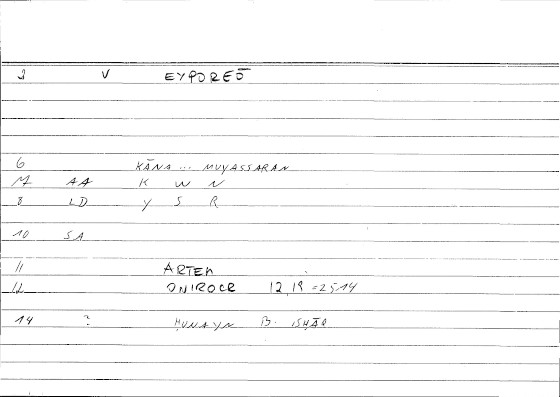 2 V EYPOREŌ
6 KĀNA ... MUYASSARAN
7 AA K W N
8 LD Y S R
10 SA
11 ARTEM
12 ONIROCR 12,19 = 25,14
14 ? ḤUNAYN B. ISḤĀQ